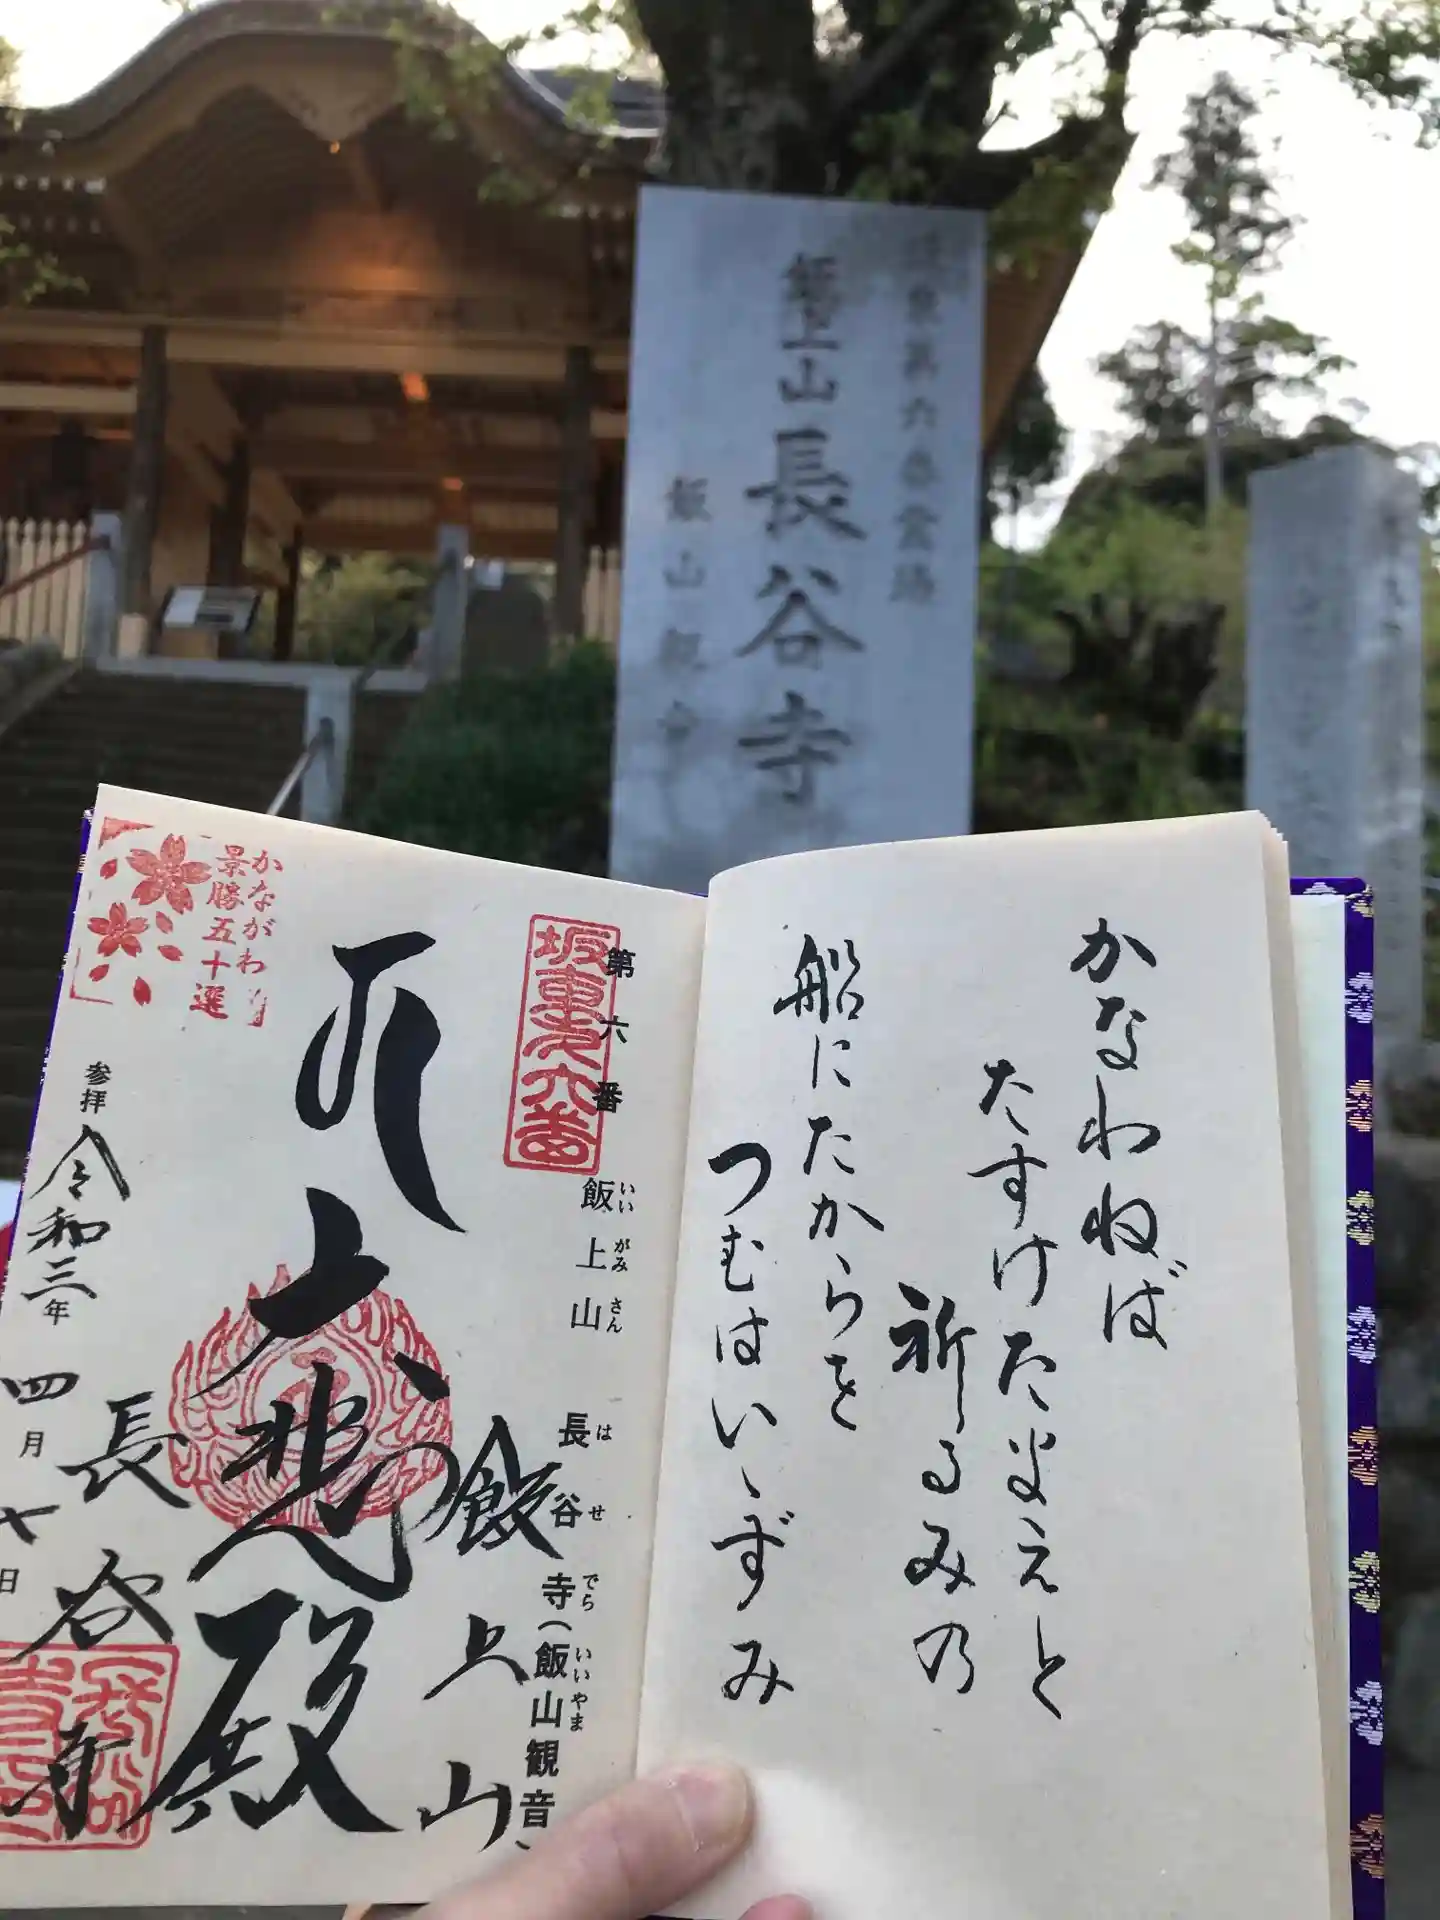 坂東第六番霊場
飯上山長谷寺
飯山観音
かなわねば
たすけたまえと
祈るみの
船にたからを
つむはいゝずみ
第六番
飯上山
いいがみさん
長谷寺(飯山観音)
はせでら
いいやま
坂東六番
飯上山
大悲殿
長谷寺
かながわの
景勝五十選
参拝
令和三年
四月
七日